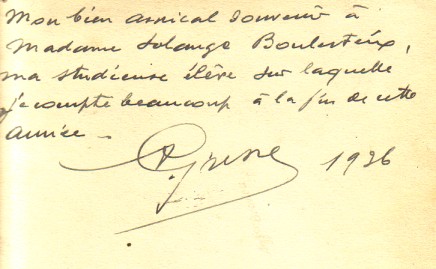 Mon bien amical souvenir à
Madame Solange Boulesteix,
ma studieuse élève sur laquelle
je compte beaucoup à la fin de cette
année_
1926